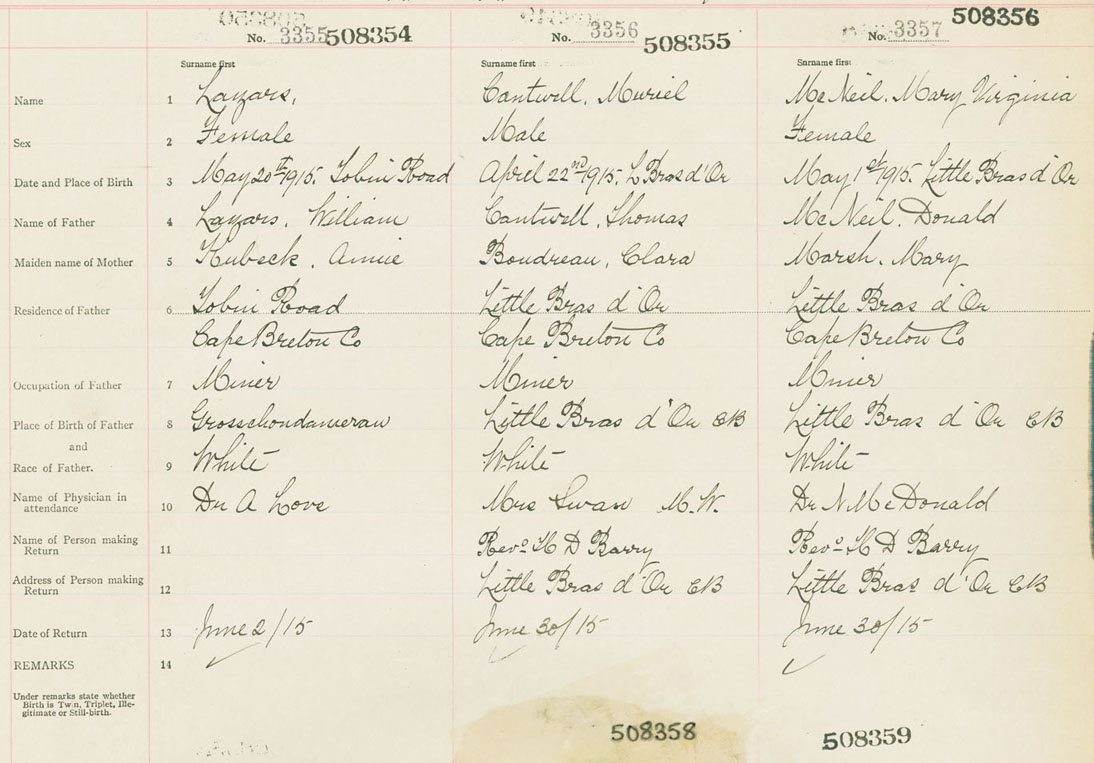 No. 3355 508354
No. 3356 508355
No. 3357 508356
Surname first Surname first Surname first
Name 1 Lazars, Cantwell, Muriel McNeil, Mary Virginia
Sex 2 Female Male Female
Date and Place of Birth 3 May 20th 1915. Tobin Road April 22nd 1915. L Bras d'Or May 1st 1915. Little Bras d'Or
Name of Father 4 Lazars, William Cantwell, Thomas McNeil, Donald
Maiden name of Mother 5 Kubeck, Annie Boudreau, Clara Marsh, Mary
Residence of Father 6 Tobin Road Little Bras d'Or Little Bras d'Or
Cape Breton Co Cape Breton Co Cape Breton Co
Occupation of Father 7 Miner Miner Miner
Place of Birth of Father 8 Little Bras d'Or CB Little Bras d'Or CB
and
Race of Father. 9 White White White
Name of Physician in
attendance 10 Dr A Love Mrs Swan M.W. Dr N McDonald
Name of Person making
Return 11 Revd H D Barry Revd H D Barry
Address of Person making
Return 12 Little Bras d'Or CB Little Bras d'Or CB
Date of Return 13 June 2/15 June 30/15 June 30/15
REMARKS 14
Under remarks state whether
Birth is Twin, Triplet, Ille-
gitimate or Still-birth.
508358
508359